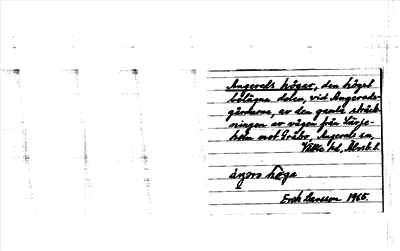 Angereds högar, den högst
belägna delen, vid Angereds-
gårdarna, av den gamla sträck-
ningen av vägen från Lärje-
holm mot Gråbo, Angereds sn,
Vättle hd, Älvsb. l.
ångᴐrs hö̀ga
Erik Larsson 1965.